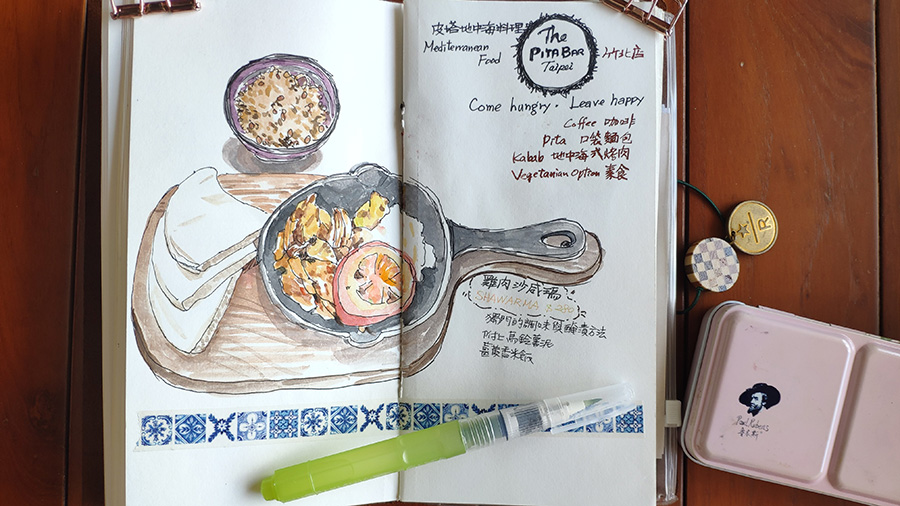 皮塔地中海料理
Mediterranean
Food
The
PITA BAR
Taipei
竹北店
Come hungry. Leave happy
Coffee 咖啡
Pita 口袋麵包
Kabab 地中海式烤肉
Vegetarian Option 素食
雞肉沙威瑪
SHAWARMA $280
獨門的調味與醃漬方法
附上馬鈴薯泥
薑黃香米飯
R